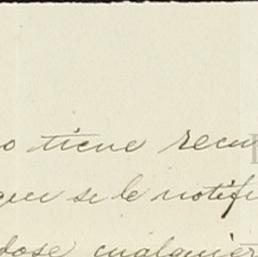 o tiene recu
que se le notifi
dose cualquier